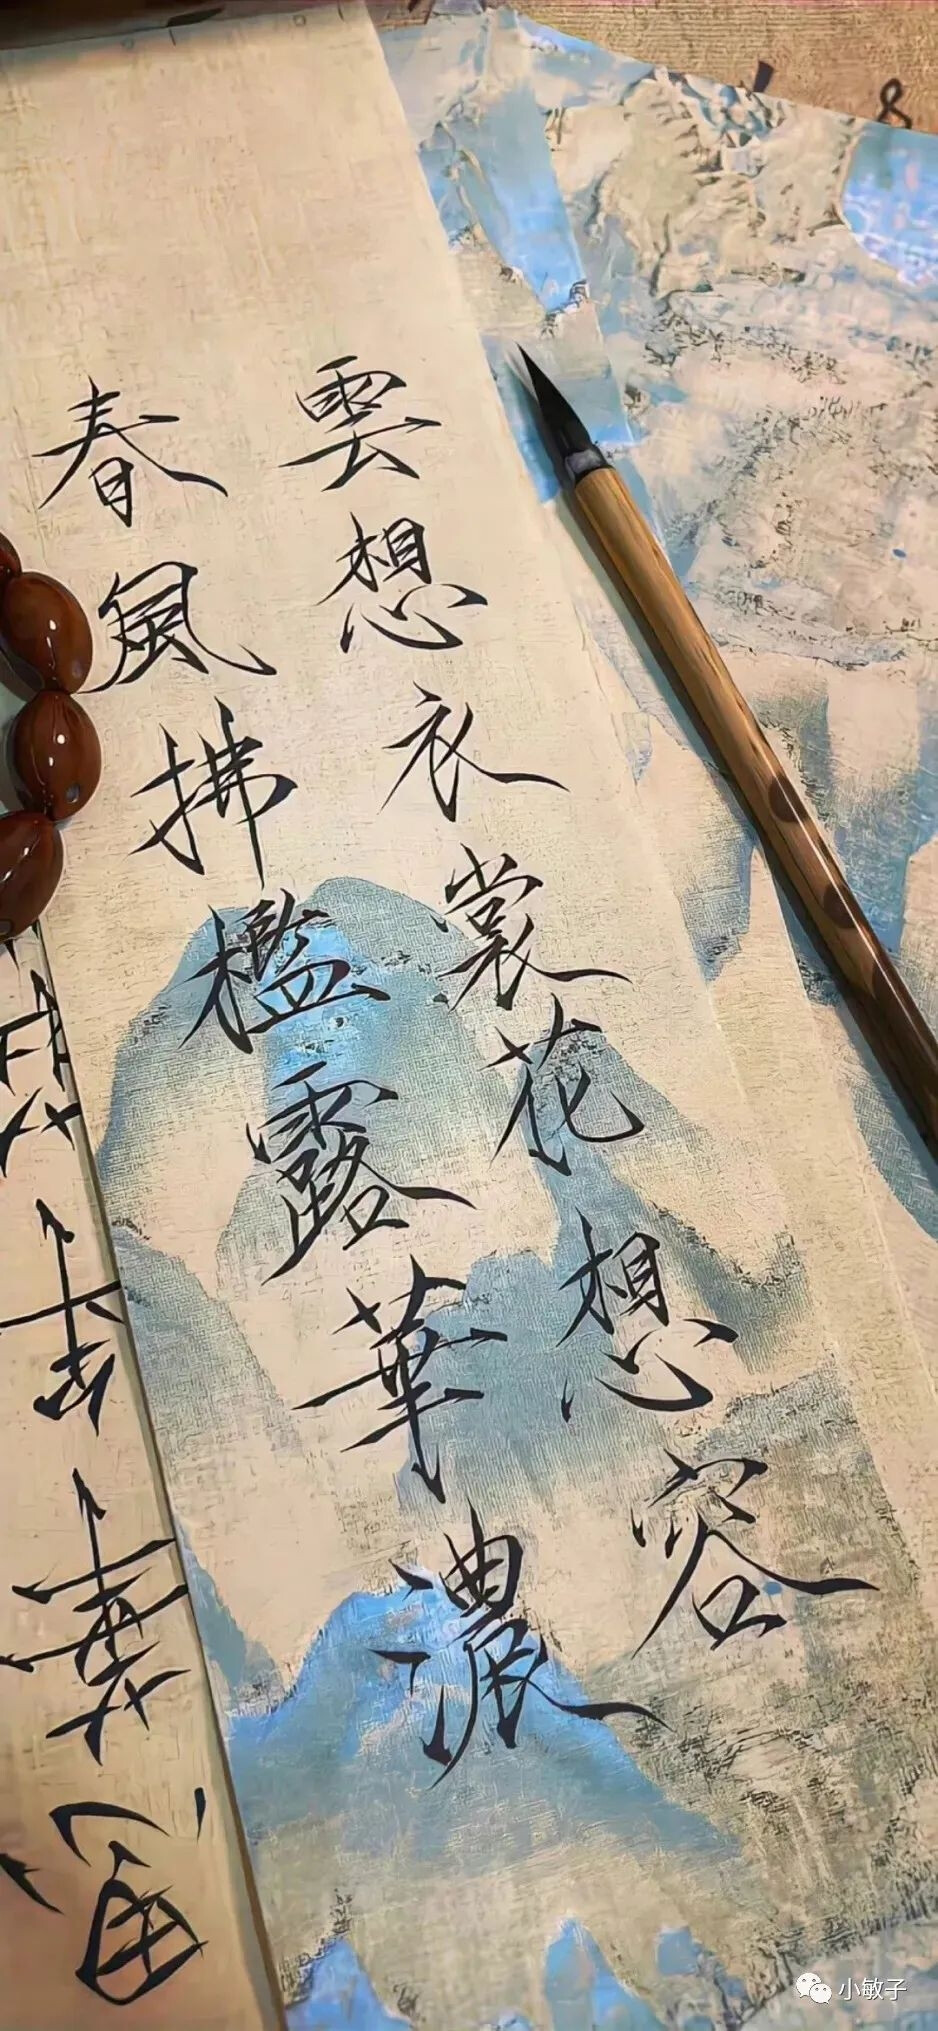 雲想衣裳花想容
春風拂檻露華濃
小敏子